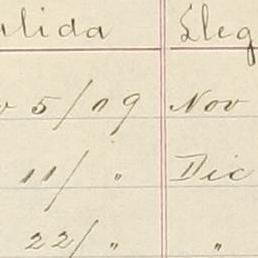 alida Lleg
v 5/09 Nov
11/ " Dic
22/ " "